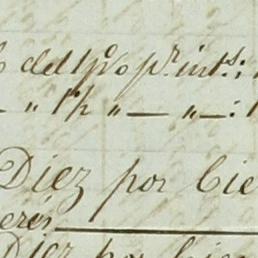 del 1 p% pr. ints:
" 1½ " — " — :
Diez por Cie
erés
Diez por Cie